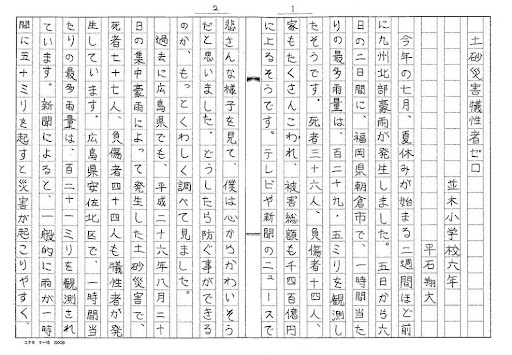 1
土砂災害犠牲者ゼロ
並木小学校六年
平石翔大
今年の七月、夏休みが始まる二週間ほど前
に九州北部豪雨が発生しました。五日から六
日の二日間に、福岡県朝倉市で、一時間当た
りの最多雨量は、百二十九・五ミリを観測し
たそうです。死者三十六人、負傷者十四人、
家もたくさんこわれ、被害総額も千四百億円
に上るそうです。テレビや新聞のニュースで
2
悲さんな様子を見て、僕は心からかわいそう
だと思いました。どうしたら防ぐ事ができる
のか、もっとくわしく調べて見ました。
過去に広島県でも、平成二十六年八月二十
日の集中豪雨によって発生した土砂災害で、
死者七十七人、負傷者四十四人も犠牲者が発
生しています。広島県安佐北区で、一時間当
たりの最多雨量は、百二十一ミリを観測され
ています。新聞によると、一般的に雨が一時
間に五十ミリを起すと災害が起こりやすく、
コクヨ ケ-10 20×20